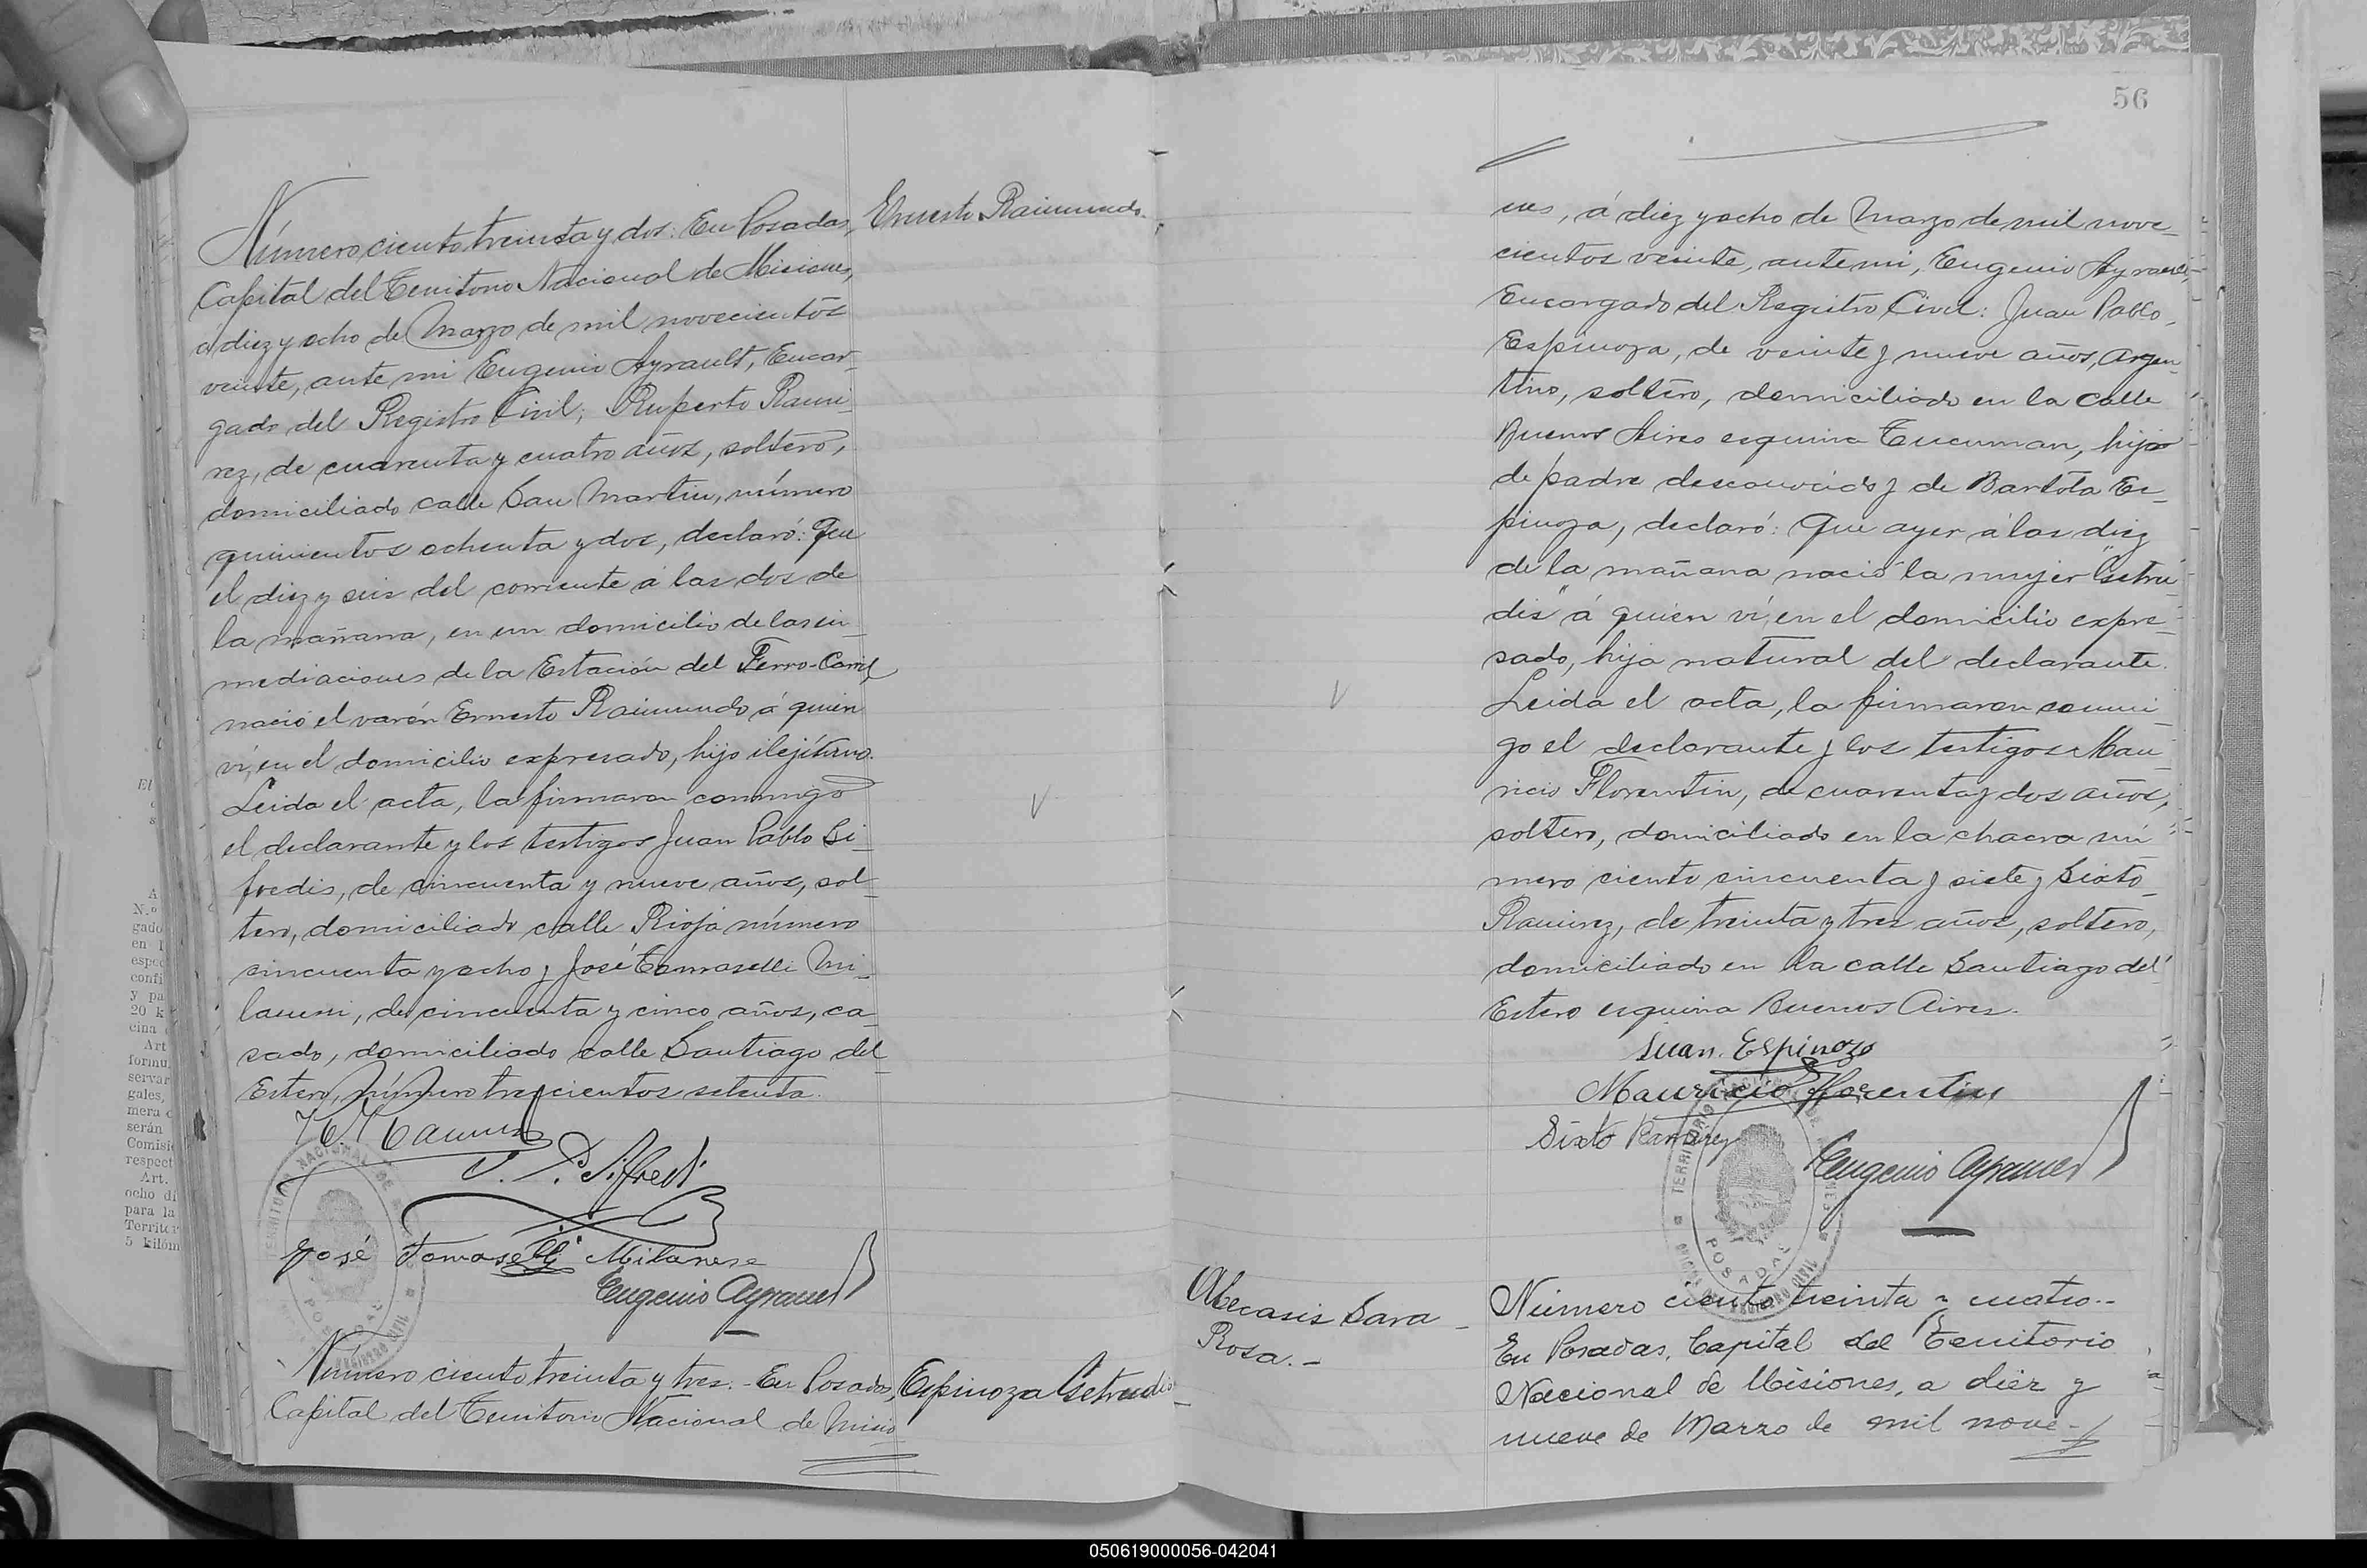 Número ciento treinta y dos. En Posadas,
Capital del Territorio Nacional de Misiones,
á diez y ocho de Marzo de mil novecientos
veinte, ante mi Eugenio Ayrault, Encar-
gado del Registro Civil; Ruperto Rami-
rez, de cuarenta y cuatro años, soltero,
domiciliado calle San Martin, número
quinientos ochenta y dos, declaró: Que
el diez y seis del corriente á las dos de
la mañana, en un domicilio de las in-
mediaciones de la Estación del Ferro-Carril
nació el varón Ernesto Raimundo á quien
ví, en el domicilio expresado, hijo ilejítimo.
Leida el acta, la firmaron conmigo
el declarante y los testigos Juan Pablo Si-
fredis, de cincuenta y nueve años, sol-
tero, domiciliado calle Rioja número
cincuenta y ocho y José Tomaselli Mi-
lanesi, de cincuenta y cinco años, ca-
sado, domiciliado calle Santiago del
Estero, número trescientos setenta.
J. P. Sifredi
José Tomaselli Milanese
Eugenio Ayrault
Ernesto Raimundo
Número ciento treinta y tres.- En Posadas,
Capital del Territorio Nacional de Misio
Espinoza Getrudis
56
nes, á diez y ocho de Marzo de mil nove-
cientos veinte, ante mi, Eugenio Ayrault,
Encargado del Registro Civil: Juan Pablo
Espinoza, de veinte y nueve años, argen-
tino, soltero, domiciliado en la calle
Buenos Aires esquina Tucuman, hijo
de padre desconocido y de Bartola Es-
pinoza, declaró: Que ayer á las diez
de la mañana nació la mujer "Getru-
dis" á quien ví, en el domicilio expre-
sado, hija natural del declarante.
Leida el acta, la firmaron conmi-
go el declarante y los testigos Mau-
ricio Florentin, de cuarenta y dos años,
soltero, domiciliado en la chacra nú-
mero ciento cincuenta y siete y Sixto
Ramirez, de treinta y tres años, soltero,
domiciliado en la calle Santiago del
Estero esquina Buenos Aires.
Juan. Espinozo
Mauricio Florentin
Sixto Ramirez
Eugenio Ayrault
TERRITORIO NACIONAL DE MISIONES
POSADAS
Abecasis Sara
Rosa.-
Número ciento treinta y cuatro.-
En Posadas, Capital del Territorio
Nacional de Misiones, a diez y
nueve de Marzo de mil nove-
El
A
N.o
gado
en
espec
confi
y pa
20 k
cina
Art
formu
servar
gales,
mera
serán
Comisi
respect
Art.
ocho di
para la
Territor
5 kilóm
050619000056-042041